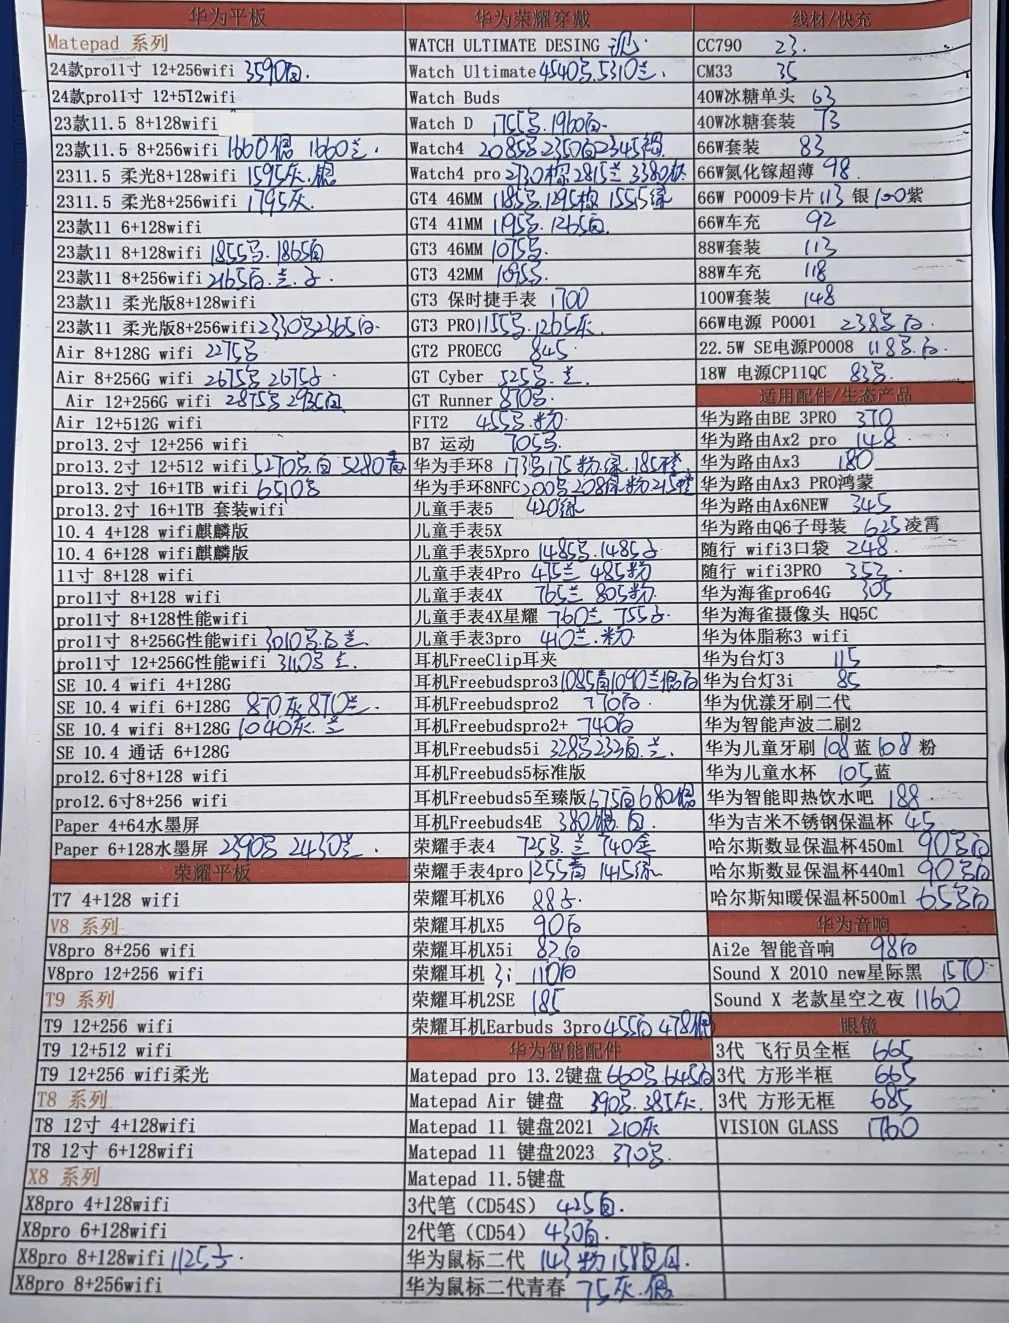 华为平板
Matepad 系列
24款pro11寸 12+256wifi 3590白.
24款pro11寸 12+512wifi
23款11.5 8+128wifi
23款11.5 8+256wifi 1660银 1660兰.
2311.5 柔光8+128wifi 1595灰.银
2311.5 柔光8+256wifi 1795灰.
23款11 6+128wifi
23款11 8+128wifi 1855号.1865白
23款11 8+256wifi 2165白.兰.子.
23款11 柔光版8+128wifi
23款11 柔光版8+256wifi 2330号2365白.
Air 8+128G wifi 2275号
Air 8+256G wifi 2675号 2675子
Air 12+256G wifi 2875号 2935白
Air 12+512G wifi
pro13.2寸 12+256 wifi
pro13.2寸 12+512 wifi 5270号.白 5280青
pro13.2寸 16+1TB wifi 6510号
pro13.2寸 16+1TB 套装wifi
10.4 4+128 wifi麒麟版
10.4 6+128 wifi麒麟版
11寸 8+128 wifi
pro11寸 8+128 wifi
pro11寸 8+128性能wifi
pro11寸 8+256G性能wifi 3010号白兰.
pro11寸 12+256G性能wifi 3110号
SE 10.4 wifi 4+128G
SE 10.4 wifi 6+128G 870灰 870兰.
SE 10.4 wifi 8+128G 1040灰.兰
SE 10.4 通话 6+128G
pro12.6寸8+128 wifi
pro12.6寸8+256 wifi
Paper 4+64水墨屏
Paper 6+128水墨屏 2390号 2430兰.
荣耀平板
T7 4+128 wifi
V8 系列
V8pro 8+256 wifi
V8pro 12+256 wifi
T9 系列
T9 12+256 wifi
T9 12+512 wifi
T9 12+256 wifi柔光
T8 系列
T8 12寸 4+128wifi
T8 12寸 6+128wifi
X8 系列
X8pro 4+128wifi
X8pro 6+128wifi
X8pro 8+128wifi 1125子.
X8pro 8+256wifi
华为荣耀穿戴
WATCH ULTIMATE DESING 讯.
Watch Ultimate 4540号.5310兰.
Watch Buds
Watch D 1755号.1960白.
Watch4 2085号2350白2345棕
Watch4 pro 2730棕2815兰 3380钛
GT4 46MM 1185号.1295棕 1555绿
GT4 41MM 1195号.1265白.
GT3 46MM 1075号.
GT3 42MM 1095号.
GT3 保时捷手表 1700
GT3 PRO 1155号.1265灰.
GT2 PROECG 845.
GT Cyber 525号.兰.
GT Runner 870号.
FIT2 455号.粉
B7 运动 705号.
华为手环8 173号175粉.绿.185橙
华为手环8NFC 200号208绿.粉215橙
儿童手表5 420绿
儿童手表5X
儿童手表5Xpro 1485号.1485子
儿童手表4Pro 475兰 485粉
儿童手表4X 765兰 805粉
儿童手表4X星耀 760兰 755子
儿童手表3pro 410兰.粉
耳机FreeClip耳夹
耳机Freebudspro3 1085青1090兰银白
耳机Freebudspro2 770白.
耳机Freebudspro2+ 740白
耳机Freebuds5i 328号233白.兰.
耳机Freebuds5标准版
耳机Freebuds5至臻版 675白680银
耳机Freebuds4E 380银.白
荣耀手表4 725号.兰 740金
荣耀手表4pro 1255青 1415绿
荣耀耳机X6 88子.
荣耀耳机X5 90白
荣耀耳机X5i 82白
荣耀耳机 3i 110白
荣耀耳机2SE 185
荣耀耳机Earbuds 3pro 455白 478银
华为智能配件
Matepad pro 13.2键盘 660号.645白
Matepad Air 键盘 390号.385灰.
Matepad 11 键盘2021 210灰
Matepad 11 键盘2023 370号.
Matepad 11.5键盘
3代笔（CD54S） 425白.
2代笔（CD54） 430白.
华为鼠标二代 143粉158白
华为鼠标二代青春 75灰.银
线材/快充
CC790 23.
CM33 35
40W冰糖单头 63
40W冰糖套装 73
66W套装 83
66W氮化镓超薄 98.
66W P0009卡片 113 银 100紫
66W车充 92
88W套装 113
88W车充 118
100W套装 148
66W电源 P0001 238号白.
22.5W SE电源P0008 118号.白.
18W 电源CP11QC 83号.
适用配件/生态产品
华为路由BE 3PRO 370
华为路由Ax2 pro 148
华为路由Ax3 180
华为路由Ax3 PRO鸿蒙
华为路由Ax6NEW 345
华为路由Q6子母装 625凌霄
随行 wifi3口袋 248.
随行 wifi3PRO 352.
华为海雀pro64G 305
华为海雀摄像头 HQ5C
华为体脂称3 wifi
华为台灯3 115
华为台灯3i 85
华为优漾牙刷二代
华为智能声波二刷2
华为儿童牙刷 108蓝 108 粉
华为儿童水杯 105蓝
华为智能即热饮水吧 188.
华为吉米不锈钢保温杯 45
哈尔斯数显保温杯450ml 90号白
哈尔斯数显保温杯440ml 90号白
哈尔斯知暖保温杯500ml 65号白
华为音响
Ai2e 智能音响 98白
Sound X 2010 new星际黑 1570
Sound X 老款星空之夜 1160
眼镜
3代 飞行员全框 665
3代 方形半框 665
3代 方形无框 685
VISION GLASS 1760